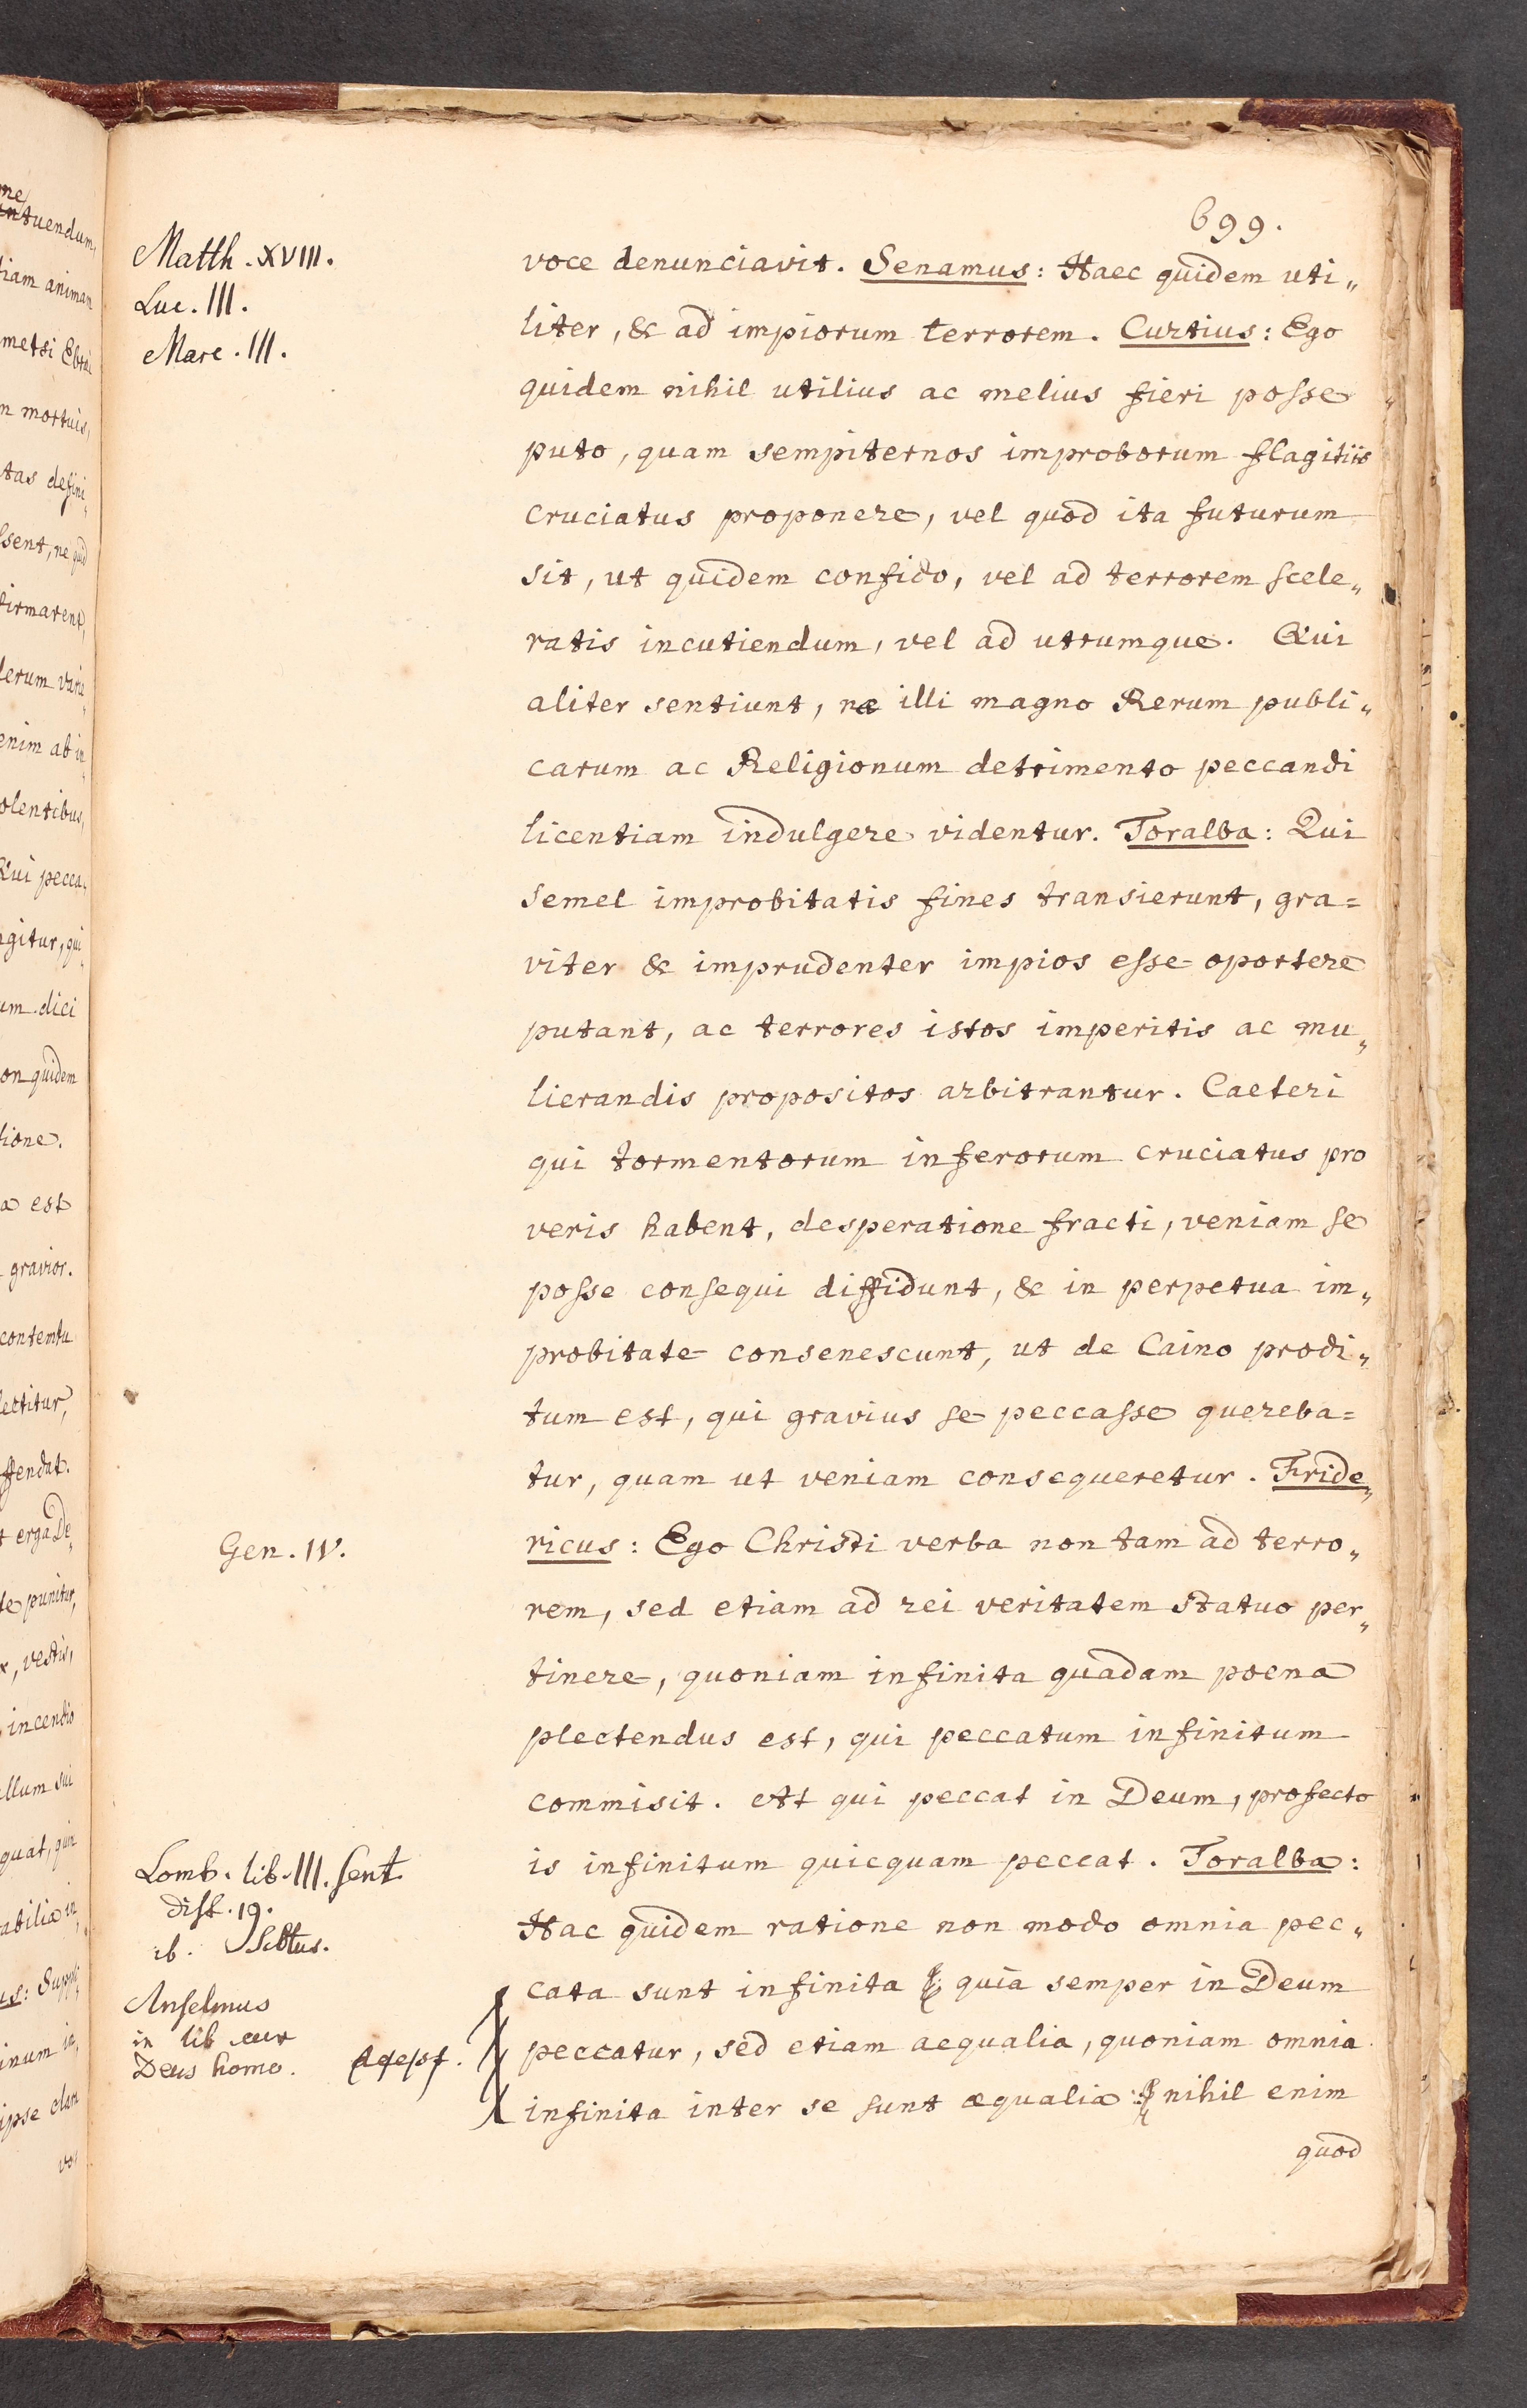 699.
Matth. XVIII.
Luc. III.
Marc. III.
voce denunciavit. Senamus: Haec quidem uti„
liter, & ad impiorum terrorem. Curtius: Ego
quidem nihil utilius ac melius fieri posse
puto, quam sempiternos improborum flagitiis
cruciatus proponere, vel quod ita futurum
sit, ut quidem confido, vel ad terrorem scele„
ratis incutiendum, vel ad utrumque. Qui
aliter sentiunt, næ illi magno Rerum publi„
carum ac Religionum detrimento peccandi
licentiam indulgere videntur. Toralba: Qui
semel improbitatis fines transierunt, gra=
viter & imprudenter impios esse oportere
putant, ac terrores istos imperitis ac mu„
lierandis propositos arbitrantur. Caeteri
qui tormentorum inferorum cruciatus pro
veris habent, desperatione fracti, veniam se
posse consequi diffidunt, & in perpetua im„
probitate consenescunt, ut de Caino prodi„
tum est, qui gravius se peccasse quereba=
tur, quam ut veniam consequeretur. Fride„
Gen. IV.
ricus: Ego Christi verba non tam ad terro„
rem, sed etiam ad rei veritatem statuo per„
tinere, quoniam infinita quadam poena
plectendus est, qui peccatum infinitum
commisit. At qui peccat in Deum, profecto
is infinitum quicquam peccat. Toralba:
Lomb. lib. III. Sent.
dist. 19.
ib.
Hac quidem ratione non modo omnia pec„
cata sunt infinita quia semper in Deum
Anselmus
in lib cur
Deus homo.
peccatur, sed etiam aequalia, quoniam omnia
infinita inter se sunt æqualia: nihil enim
quod